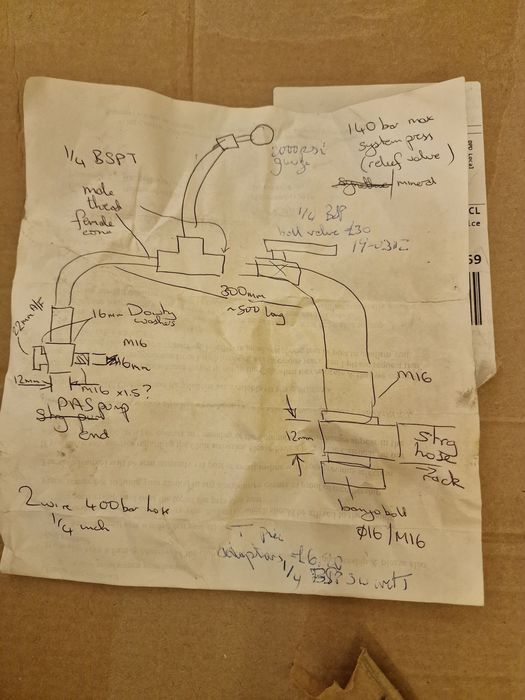 2000psi
gauge
140 bar max
system press
(relief valve)
mineral
1/4 BSPT
male
thread
female
cone
1/4 BSP
ball valve £30
300mm
~500 long
22mm A/F
16mm Dowty
washers
M16
16mm
12mm
M16 x1.5?
PAS pump
end
M16
12mm
strg
hose
rack
banjo bolt
Ø16/M16
2 wire 400 bar hose
1/4 inch
T
adaptors £6
1/4 BSP
DPD Local
CL
59